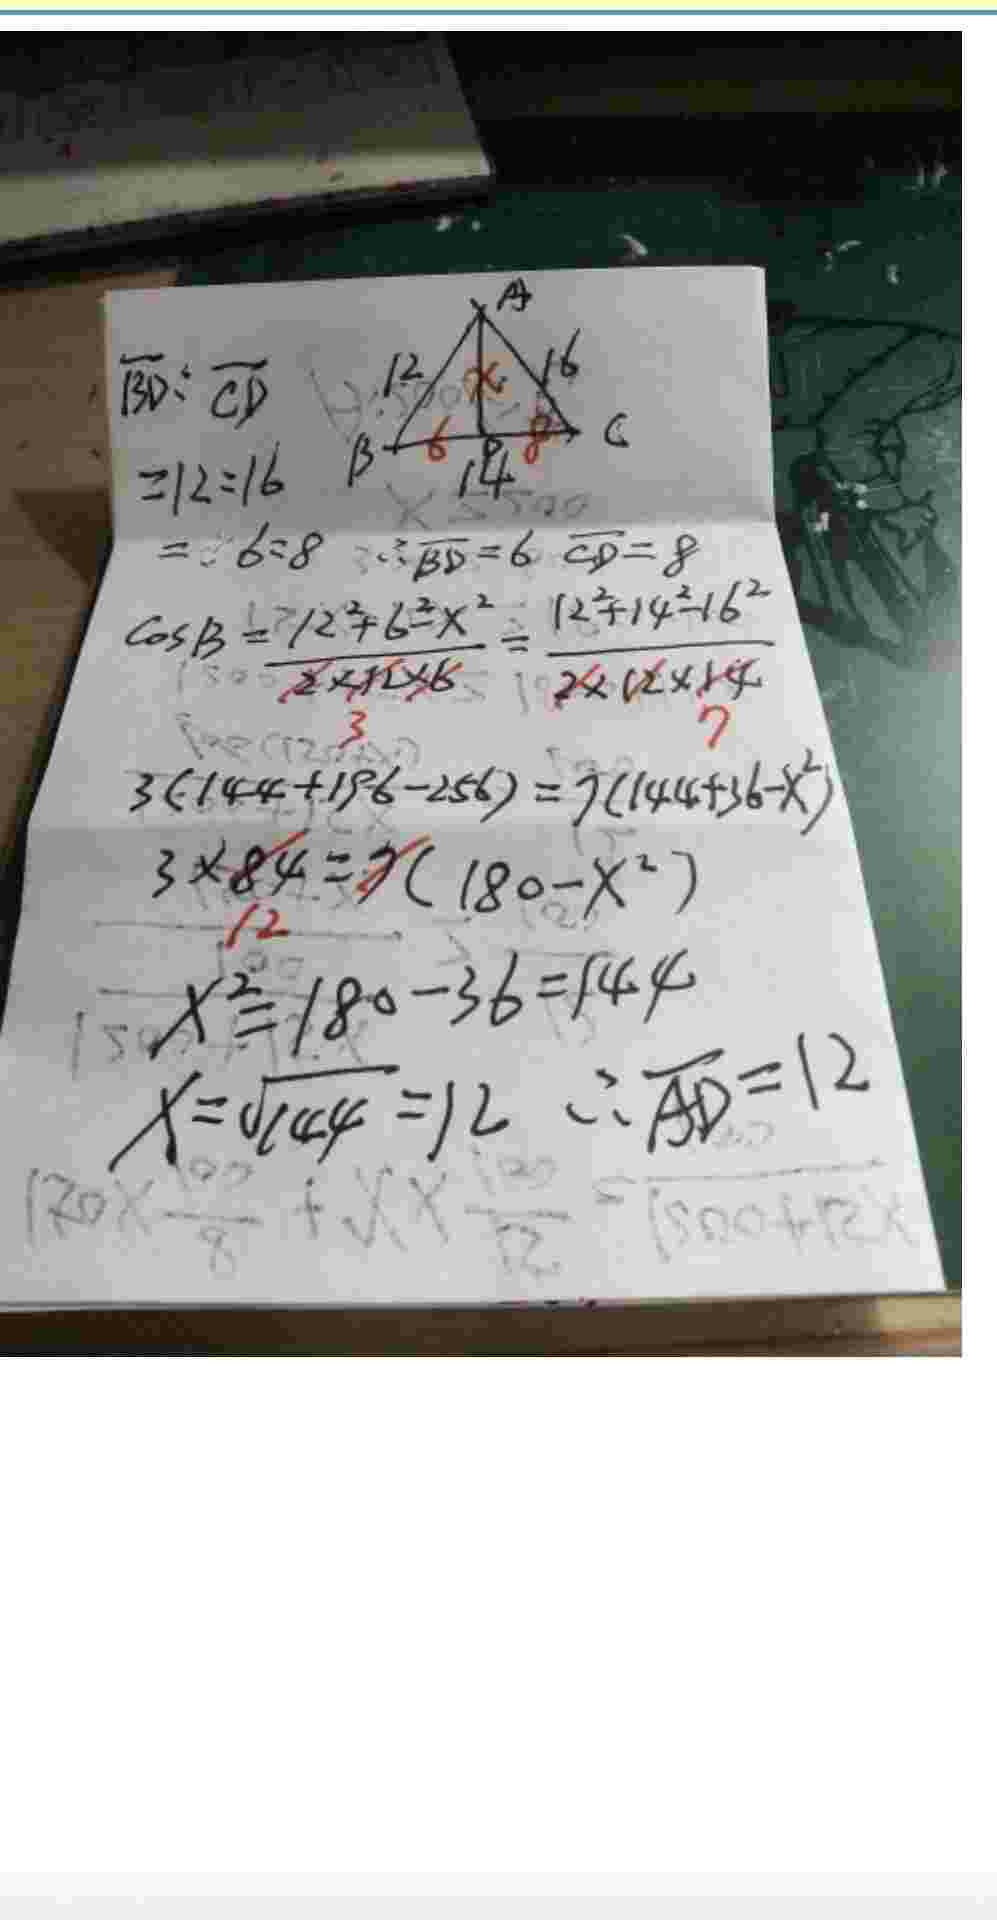 A
12
x
16
B
6
D
8
C
14
BD:CD
=12:16
=6:8 ∴BD=6 CD=8
cosB=(12²+6²-x²)/(2×12×6)=(12²+14²-16²)/(2×12×14)
3
7
3(144+196-256)=7(144+36-x²)
3×84=7(180-x²)
12
x²=180-36=144
x=√144=12 ∴AD=12